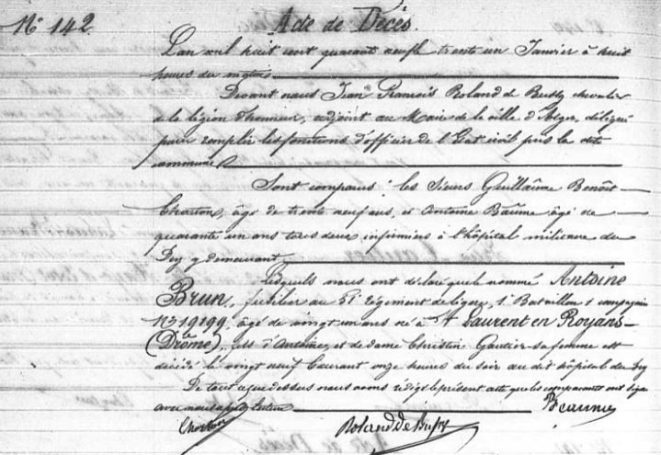 N° 142. Acte de Décès.
L'an mil huit cent quarante neuf trente un Janvier à huit
heures du matin
Devant nous Jean François Roland de Bussy chevalier
de la légion d'honneur, adjoint au Maire de la ville d'Alger, délégué
pour remplir les fonctions d'officier de l'Etat civil près la dite
commune
Sont comparus : les Sieurs Guillaume Benoît
Charton, âgé de trente neuf ans, et Antoine Baume âgé de
quarante un ans tous deux infirmiers à l'hôpital militaire du
Dey y demeurant
Lesquels nous ont déclaré que le nommé Antoine
Brun, fusilier au 51e régiment de ligne, 1er Bataillon compagnie
N° 19199, âgé de vingt un ans né à St Laurent en Royans
(Drôme), fils d'Antoine, et de dame Christin Gautier sa femme est
décédé le vingt neuf Courant onze heures du soir au dit hôpital du Dey
De tout ce que dessus nous avons rédigé le présent acte que les comparants ont signé
avec nous après lecture Beaume
Charton Roland de Bussy